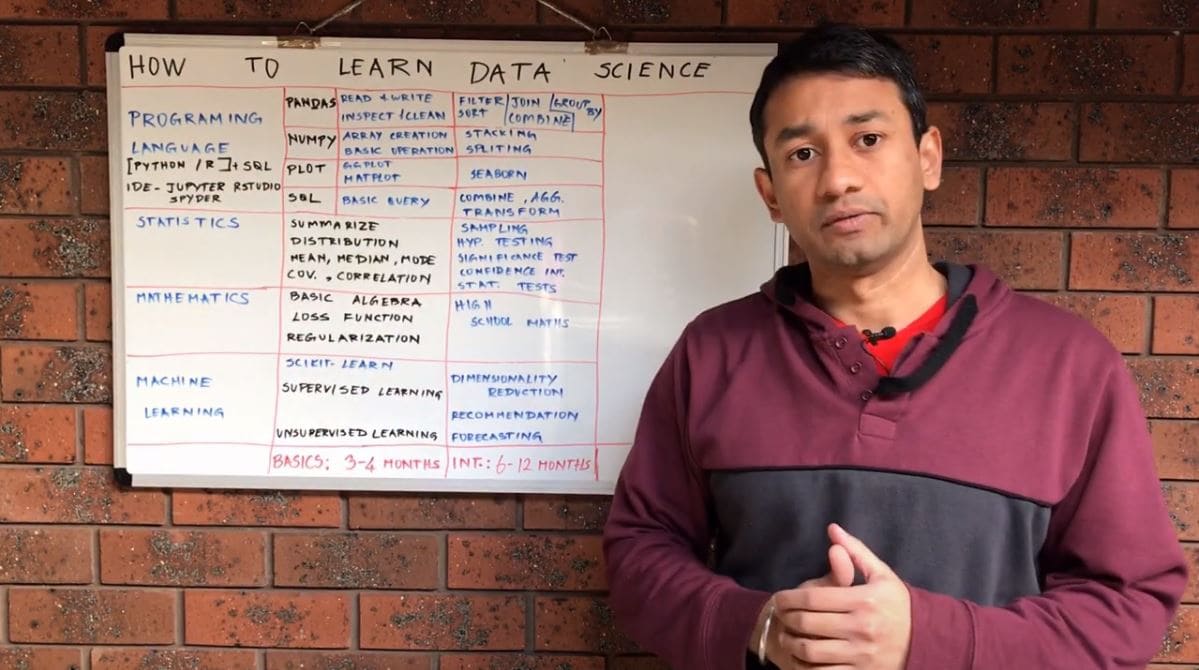 HOW TO LEARN DATA SCIENCE
PROGRAMING
LANGUAGE
[PYTHON / R ]+ SQL
IDE- JUPYTER RSTUDIO
SPYDER
PANDAS
READ & WRITE
INSPECT & CLEAN
FILTER/JOIN/GROUP BY
SORT COMBINE
NUMPY
ARRAY CREATION
BASIC OPERATION
STACKING
SPLITING
PLOT
GGPLOT
MATPLOT
SEABORN
SQL
BASIC QUERY
COMBINE, AGG.
TRANSFORM
STATISTICS
SUMMARIZE
DISTRIBUTION
MEAN, MEDIAN, MODE
COV., CORRELATION
SAMPLING
HYP. TESTING
SIGNIFICANCE TEST
CONFIDENCE INT.
STAT. TESTS
MATHEMATICS
BASIC ALGEBRA
LOSS FUNCTION
REGULARIZATION
HIGH
SCHOOL MATHS
MACHINE
LEARNING
SCIKIT-LEARN
SUPERVISED LEARNING
UNSUPERVISED LEARNING
DIMENSIONALITY
REDUCTION
RECOMMENDATION
FORECASTING
BASICS: 3-4 MONTHS
INT.: 6-12 MONTHS